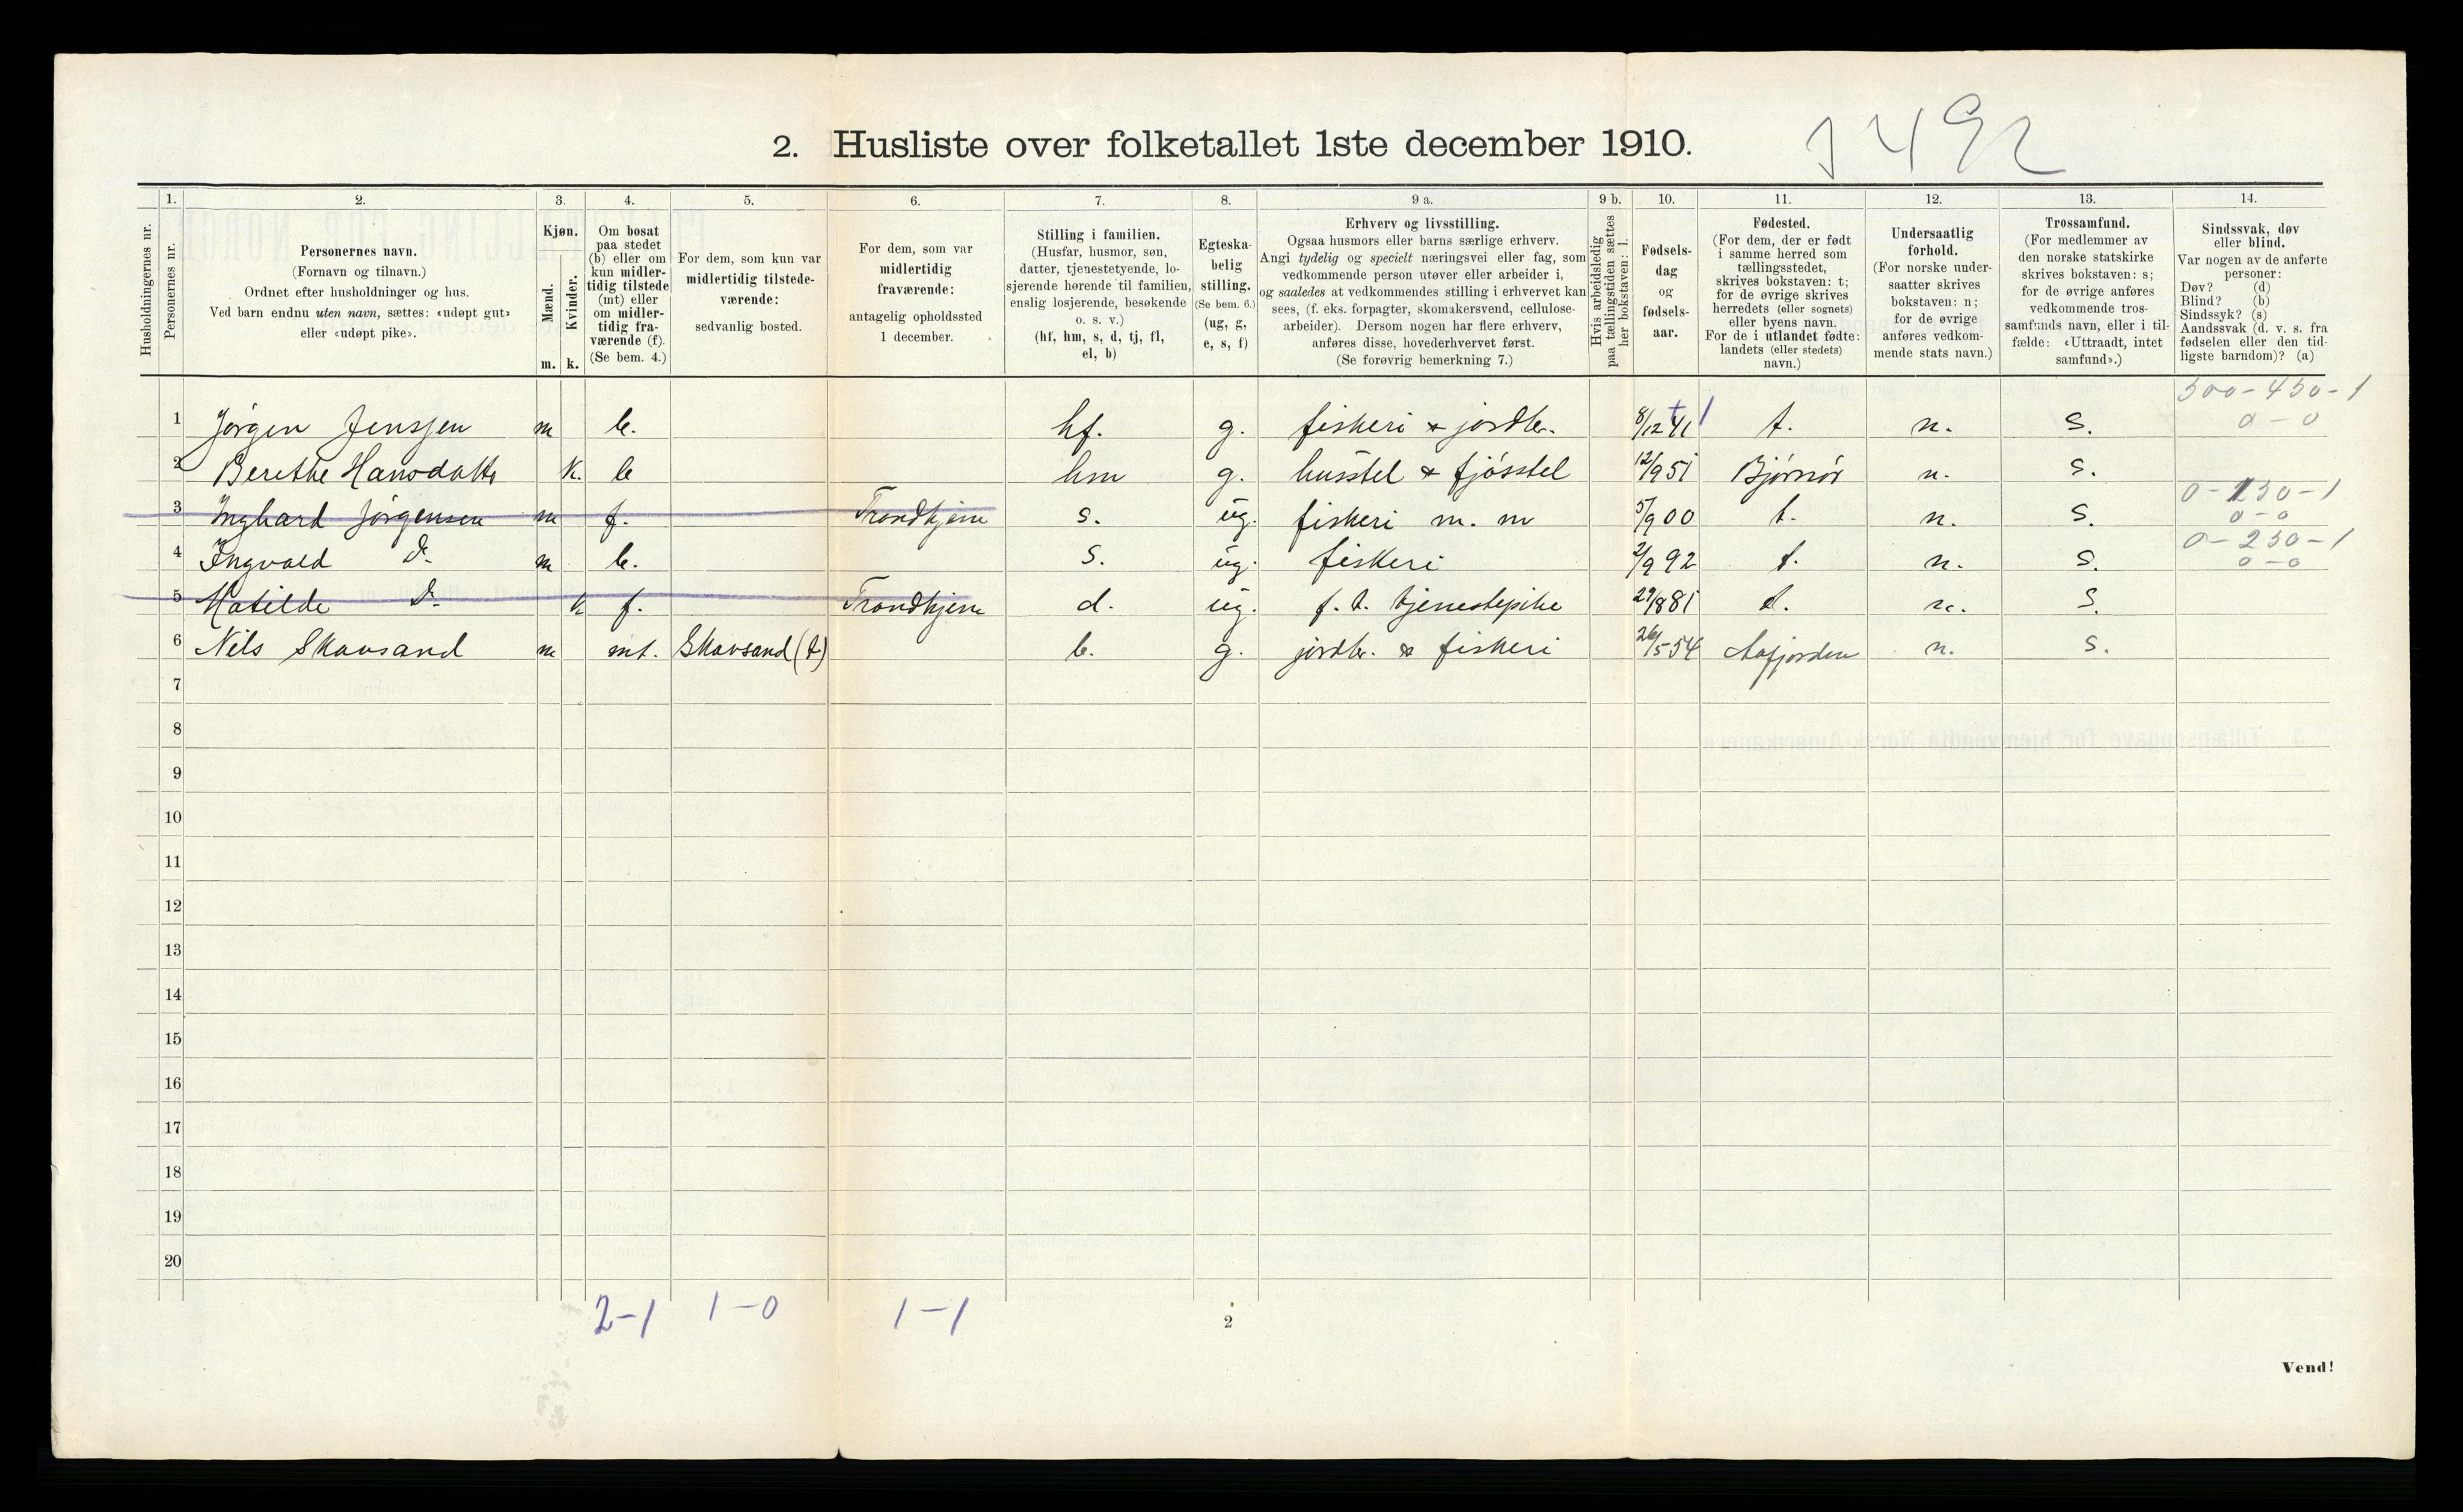 2. Husliste over folketallet 1ste december 1910.
1492
Husholdningernes nr.
1.
Personernes nr.
2.
Personernes navn.
(Fornavn og tilnavn.)
Ordnet efter husholdninger og hus.
Ved barn endnu uten navn, sættes: «udøpt gut»
eller «udøpt pike».
3.
Kjøn.
Mænd.
Kvinder.
m. k.
4.
Om bosat
paa stedet
(b) eller om
kun midler-
tidig tilstede
(mt) eller
om midler-
tidig fra-
værende (f).
(Se bem. 4.)
5.
For dem, som kun var
midlertidig tilstede-
værende:
sedvanlig bosted.
6.
For dem, som var
midlertidig
fraværende:
antagelig opholdssted
1 december.
7.
Stilling i familien.
(Husfar, husmor, søn,
datter, tjenestetyende, lo-
sjerende hørende til familien,
enslig losjerende, besøkende
o. s. v.)
(hf, hm, s, d, tj, fl,
el, b)
8.
Egteska-
belig
stilling.
(Se bem. 6.)
(ug, g,
e, s, f)
9 a.
Erhverv og livsstilling.
Ogsaa husmors eller barns særlige erhverv.
Angi tydelig og specielt næringsvei eller fag, som
vedkommende person utøver eller arbeider i,
og saaledes at vedkommendes stilling i erhvervet kan
sees, (f. eks. forpagter, skomakersvend, cellulose-
arbeider). Dersom nogen har flere erhverv,
anføres disse, hovederhvervet først.
(Se forøvrig bemerkning 7.)
9 b.
Hvis arbeidsledig
paa tællingstiden sættes
her bokstaven: l.
10.
Fødsels-
dag
og
fødsels-
aar.
11.
Fødested.
(For dem, der er født
i samme herred som
tællingsstedet,
skrives bokstaven: t;
for de øvrige skrives
herredets (eller sognets)
eller byens navn.
For de i utlandet fødte:
landets (eller stedets)
navn.)
12.
Undersaatlig
forhold.
(For norske under-
saatter skrives
bokstaven: n;
for de øvrige
anføres vedkom-
mende stats navn.)
13.
Trossamfund.
(For medlemmer av
den norske statskirke
skrives bokstaven: s;
for de øvrige anføres
vedkommende tros-
samfunds navn, eller i til-
fælde: «Uttraadt, intet
samfund».)
14.
Sindssvak, døv
eller blind.
Var nogen av de anførte
personer:
Døv? (d)
Blind? (b)
Sindssyk? (s)
Aandssvak (d. v. s. fra
fødselen eller den tid-
ligste barndom)? (a)
500-450-1
1 Jørgen Jenssen m b. hf. g. fiskeri & jordbr. 8/12 41 t. n. s. 0-0
2 Berethe Hansdatter k. b hm g. husstel & fjøsstel 12/9 51 Bjørnør n. s.
0-150-1
3 Inghart Jørgensen m f. Trondhjem s. ug. fiskeri m. m 5/9 00 t. n. s. 0-0
0-250-1
4 Ingvald Do m b. s. ug. fiskeri 2/9 92 t. n. s. 0-0
5 Matilde Do k f. Trondhjem d. ug. f. t. tjenestepike 29/8 81 t. n. s.
6 Nils Skavsand m mt. Skavsand (t) b. g. jordbr. & fiskeri 26/5 54 Aafjorden n. s.
7
8
9
10
11
12
13
14
15
16
17
18
19
20
2-1 1-0 1-1
2
Vend!